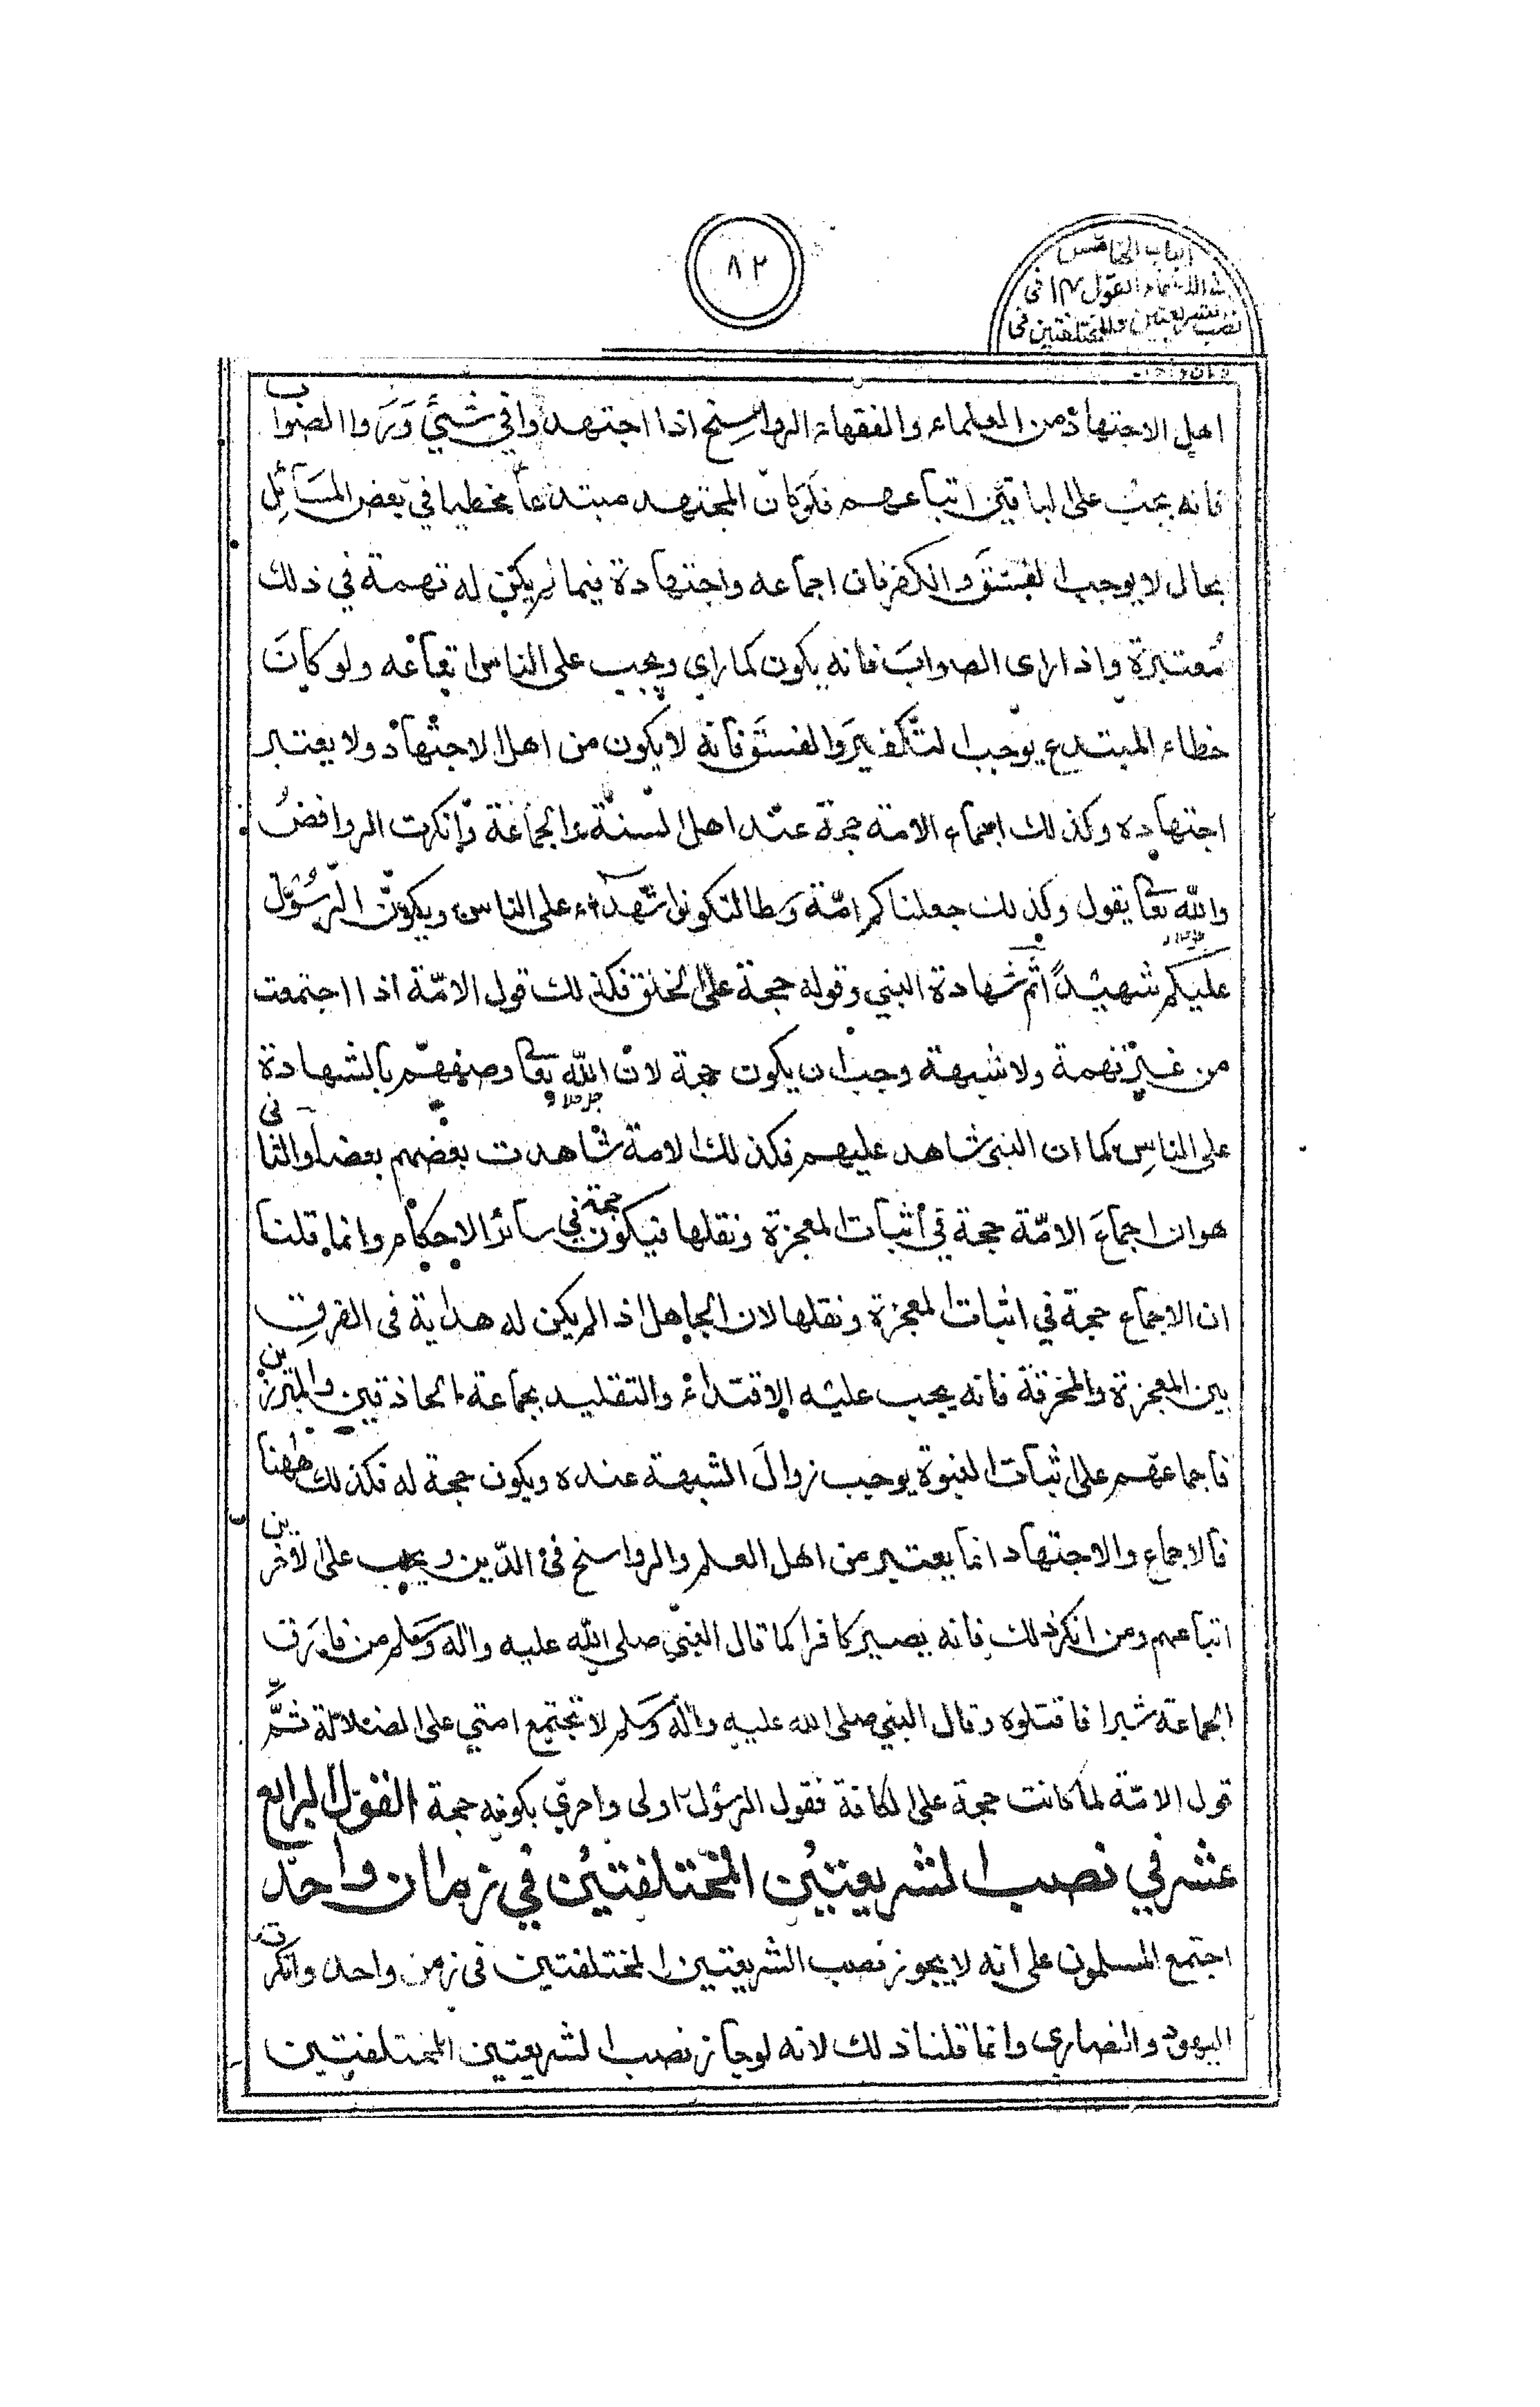 ٨٢
الباب الخامس
في الاجماع القول ١٤ في
نصب شريعتين المختلفتين في
زمان واحد
اهل الاجتهاد من العلماء والفقهاء الرواسخ اذا اجتهدوا في شيئ وَرَوا الصواب
فانه يجب على الباقين اتباعهم فلو كان المجتهد مبتدعاً مخطيا في بعض المسَائلِ
بحال لا يوجب الفِسْقَ والكفر فان اجماعه واجتهادة فيما لم يكن له تهمة في ذلك
مُعتبرة واذا راى الصوابَ فانه يكون كما راي ويجب على الناس اتباعه ولو كانَ
خطاء المبتدع يوجب التكفيرَ والفسقَ فانه لا يكون من اهل الاجتهاد ولا يعتبر
اجتهاده وكذلك اجماع الامة حجة عند اهل السنة والجماعة وانكرت الروافضُ
والله تعا يقول وكذلك جعلناكم امّة وسَطا لتكونوا شهدآء على الناس ويكونَ الرسُوْل
عليكم شهيداً ثم شهادة النبي وقوله حجة على الخلق فكذلك قول الامّة اذا اجتمعت
من غير تهمة ولا شبهة وجب ان يكون حجة لان الله تعا وصفهم بالشهادة
على الناسِ كما ان النبى شاهد عليهم فكذلك الامة شاهدت بعضهم بعضاً والثانى
هو ان اجماعَ الامّة حجة في اثبات المعجزة ونقلها فيكون حجة في سائر الاحكام وانما قلنا
ان الاجماع حجة في اثبات المعجزة ونقلها لان الجاهل اذا لم يكن له هداية فى الفرقِ
بين المعجزة والمخرقة فانه يجب عليه الاقتداء والتقليد بجماعة الحاذقين والمبرزين
فاجماعهم على اثبات النبوة يوجب زوالَ الشبهة عنده ويكون حجة له فكذلك ههُنا
فالاجماع والاجتهاد انما يعتبر من اهل العلم والرواسخ فى الدّين ويجب على الآخرين
اتباعهم ومن انكر ذلك فانه يصير كافرا كما قال النبيّ صلى الله عليه واله وَسلم من فارق
الجماعة شبرا فاقتلوه وقال النبي صلى الله عليه واله وَسلم لا تجتمع امتي على الضلالة ثمَّ
قول الامّة لما كانت حجة على الكافة فقول الرسُول اولى واحري بكونه حجة القول الرابع
عشر في نصب الشريعتين المختلفتين في زمان واحد
اجتمع المسلمون على انه لا يجوز نصب الشريعتين المختلفتين فى زمن واحد وانكرت
اليهود والنصاري وانما قلنا ذلك لانه لو جاز نصب الشريعتين المختلفتين